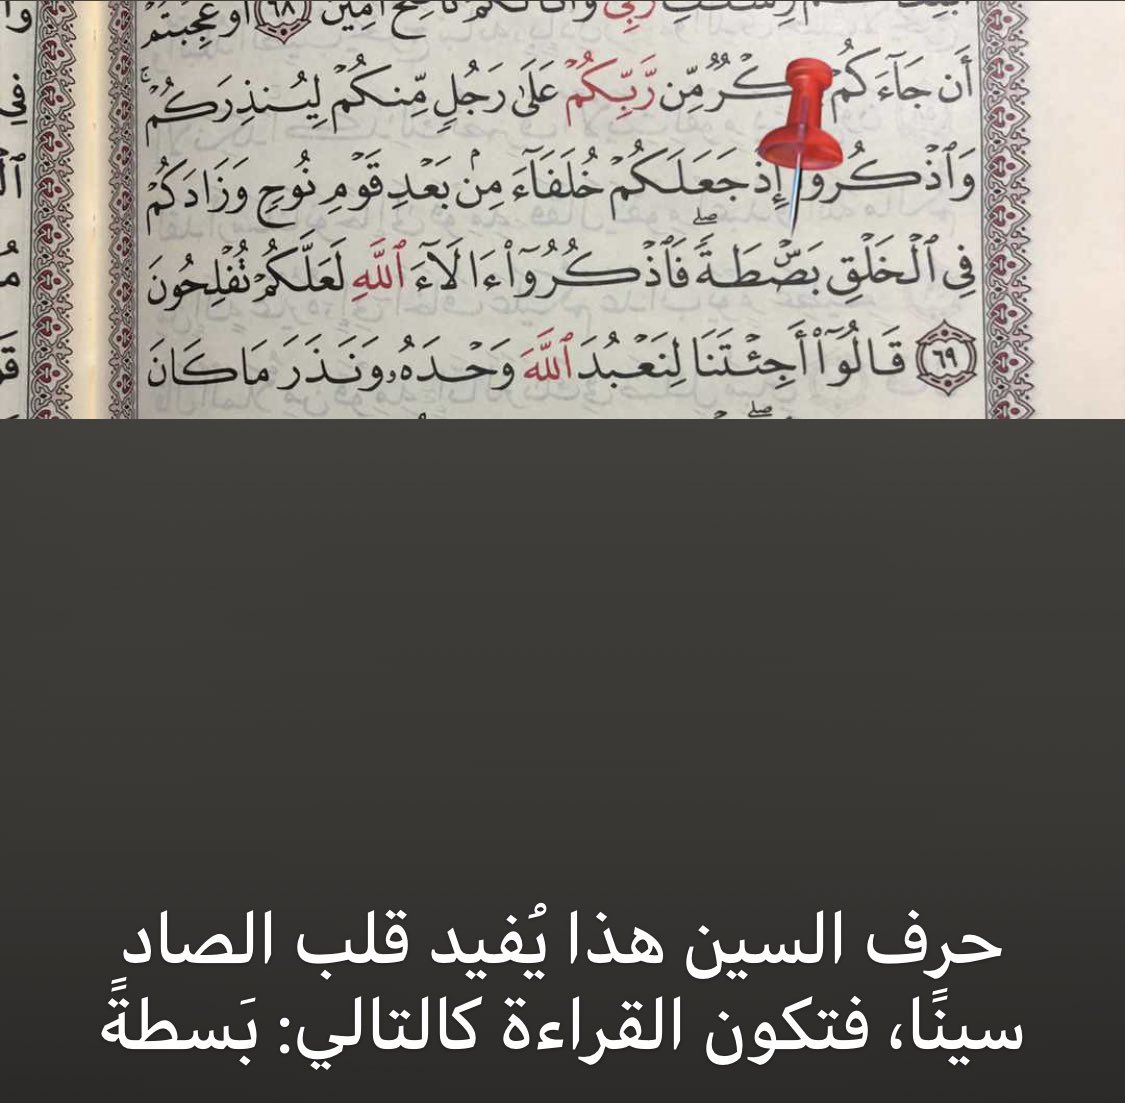 أَمِينٌ ٦٨ أَوَعَجِبْتُمْ
أَن جَآءَكُمْ مِّن رَّبِّكُمْ عَلَىٰ رَجُلٍ مِّنكُمْ لِيُنذِرَكُمْ ۚ
وَٱذْكُرُوٓا۟ إِذْ جَعَلَكُمْ خُلَفَآءَ مِنۢ بَعْدِ قَوْمِ نُوحٍ وَزَادَكُمْ
فِى ٱلْخَلْقِ بَصْۜطَةً ۖ فَٱذْكُرُوٓا۟ ءَالَآءَ ٱللَّهِ لَعَلَّكُمْ تُفْلِحُونَ
٦٩ قَالُوٓا۟ أَجِئْتَنَا لِنَعْبُدَ ٱللَّهَ وَحْدَهُۥ وَنَذَرَ مَا كَانَ
حرف السين هذا يُفيد قلب الصاد
سينًا، فتكون القراءة كالتالي: بَسطةً